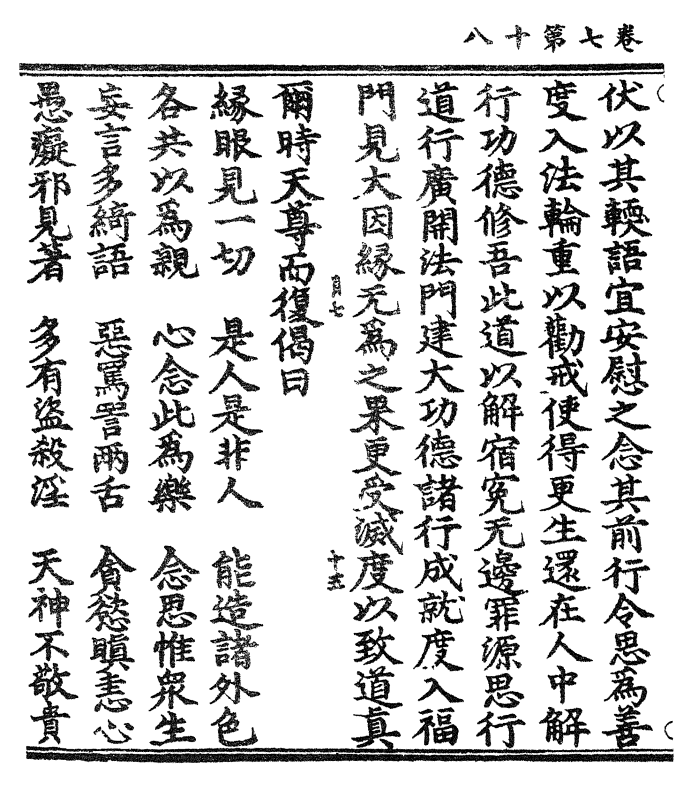 卷七第十八
伏以其輭語宜安慰之念其前行令思為善
度入法輪重以勸戒使得更生還在人中解
行功德修吾此道以解宿寃无邊罪源思行
道行廣開法門建大功德諸行成就度入福
門見大因緣无為之果更受滅度以致道眞
月七
十五
爾時天尊而復偈曰
緣眼見一切 是人是非人 能造諸外色
各共以為親 心念此為樂 念思惟衆生
妄言多綺語 惡罵詈兩舌 貪慾瞋恚心
愚癡邪見著 多有盜殺淫 天神不敬貴